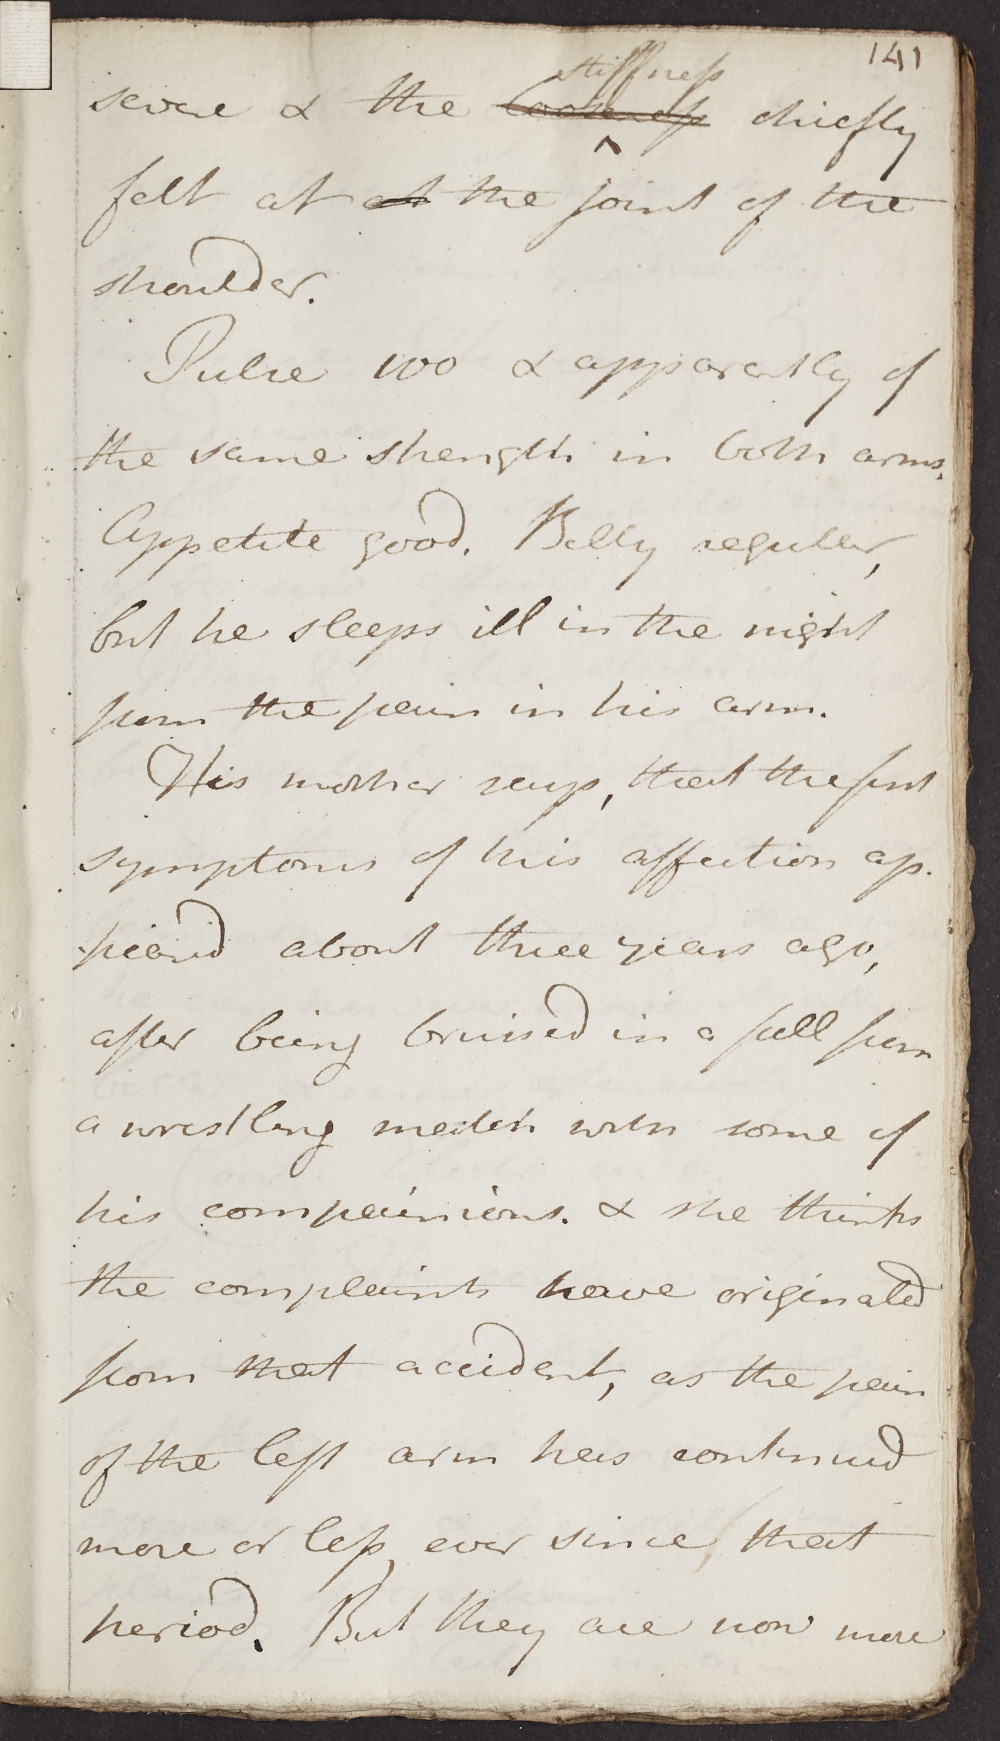 141
stiffness
severe & the looseness chiefly
felt at at the joint of the
shoulder.
Pulse 100 & apparently of
the same strength in both arms.
Appetite good. Belly regular,
but he sleeps ill in the night
from the pain in his arm.
His mother says, that the first
symptoms of his affection ap-
-pear'd about three years ago,
after being bruised in a fall from
a wrestling match with some of
his companions. & she thinks
the complaints have originated
from that accident, as the pain
of the left arm has continued
more or less, ever since, that
period. But they are now more